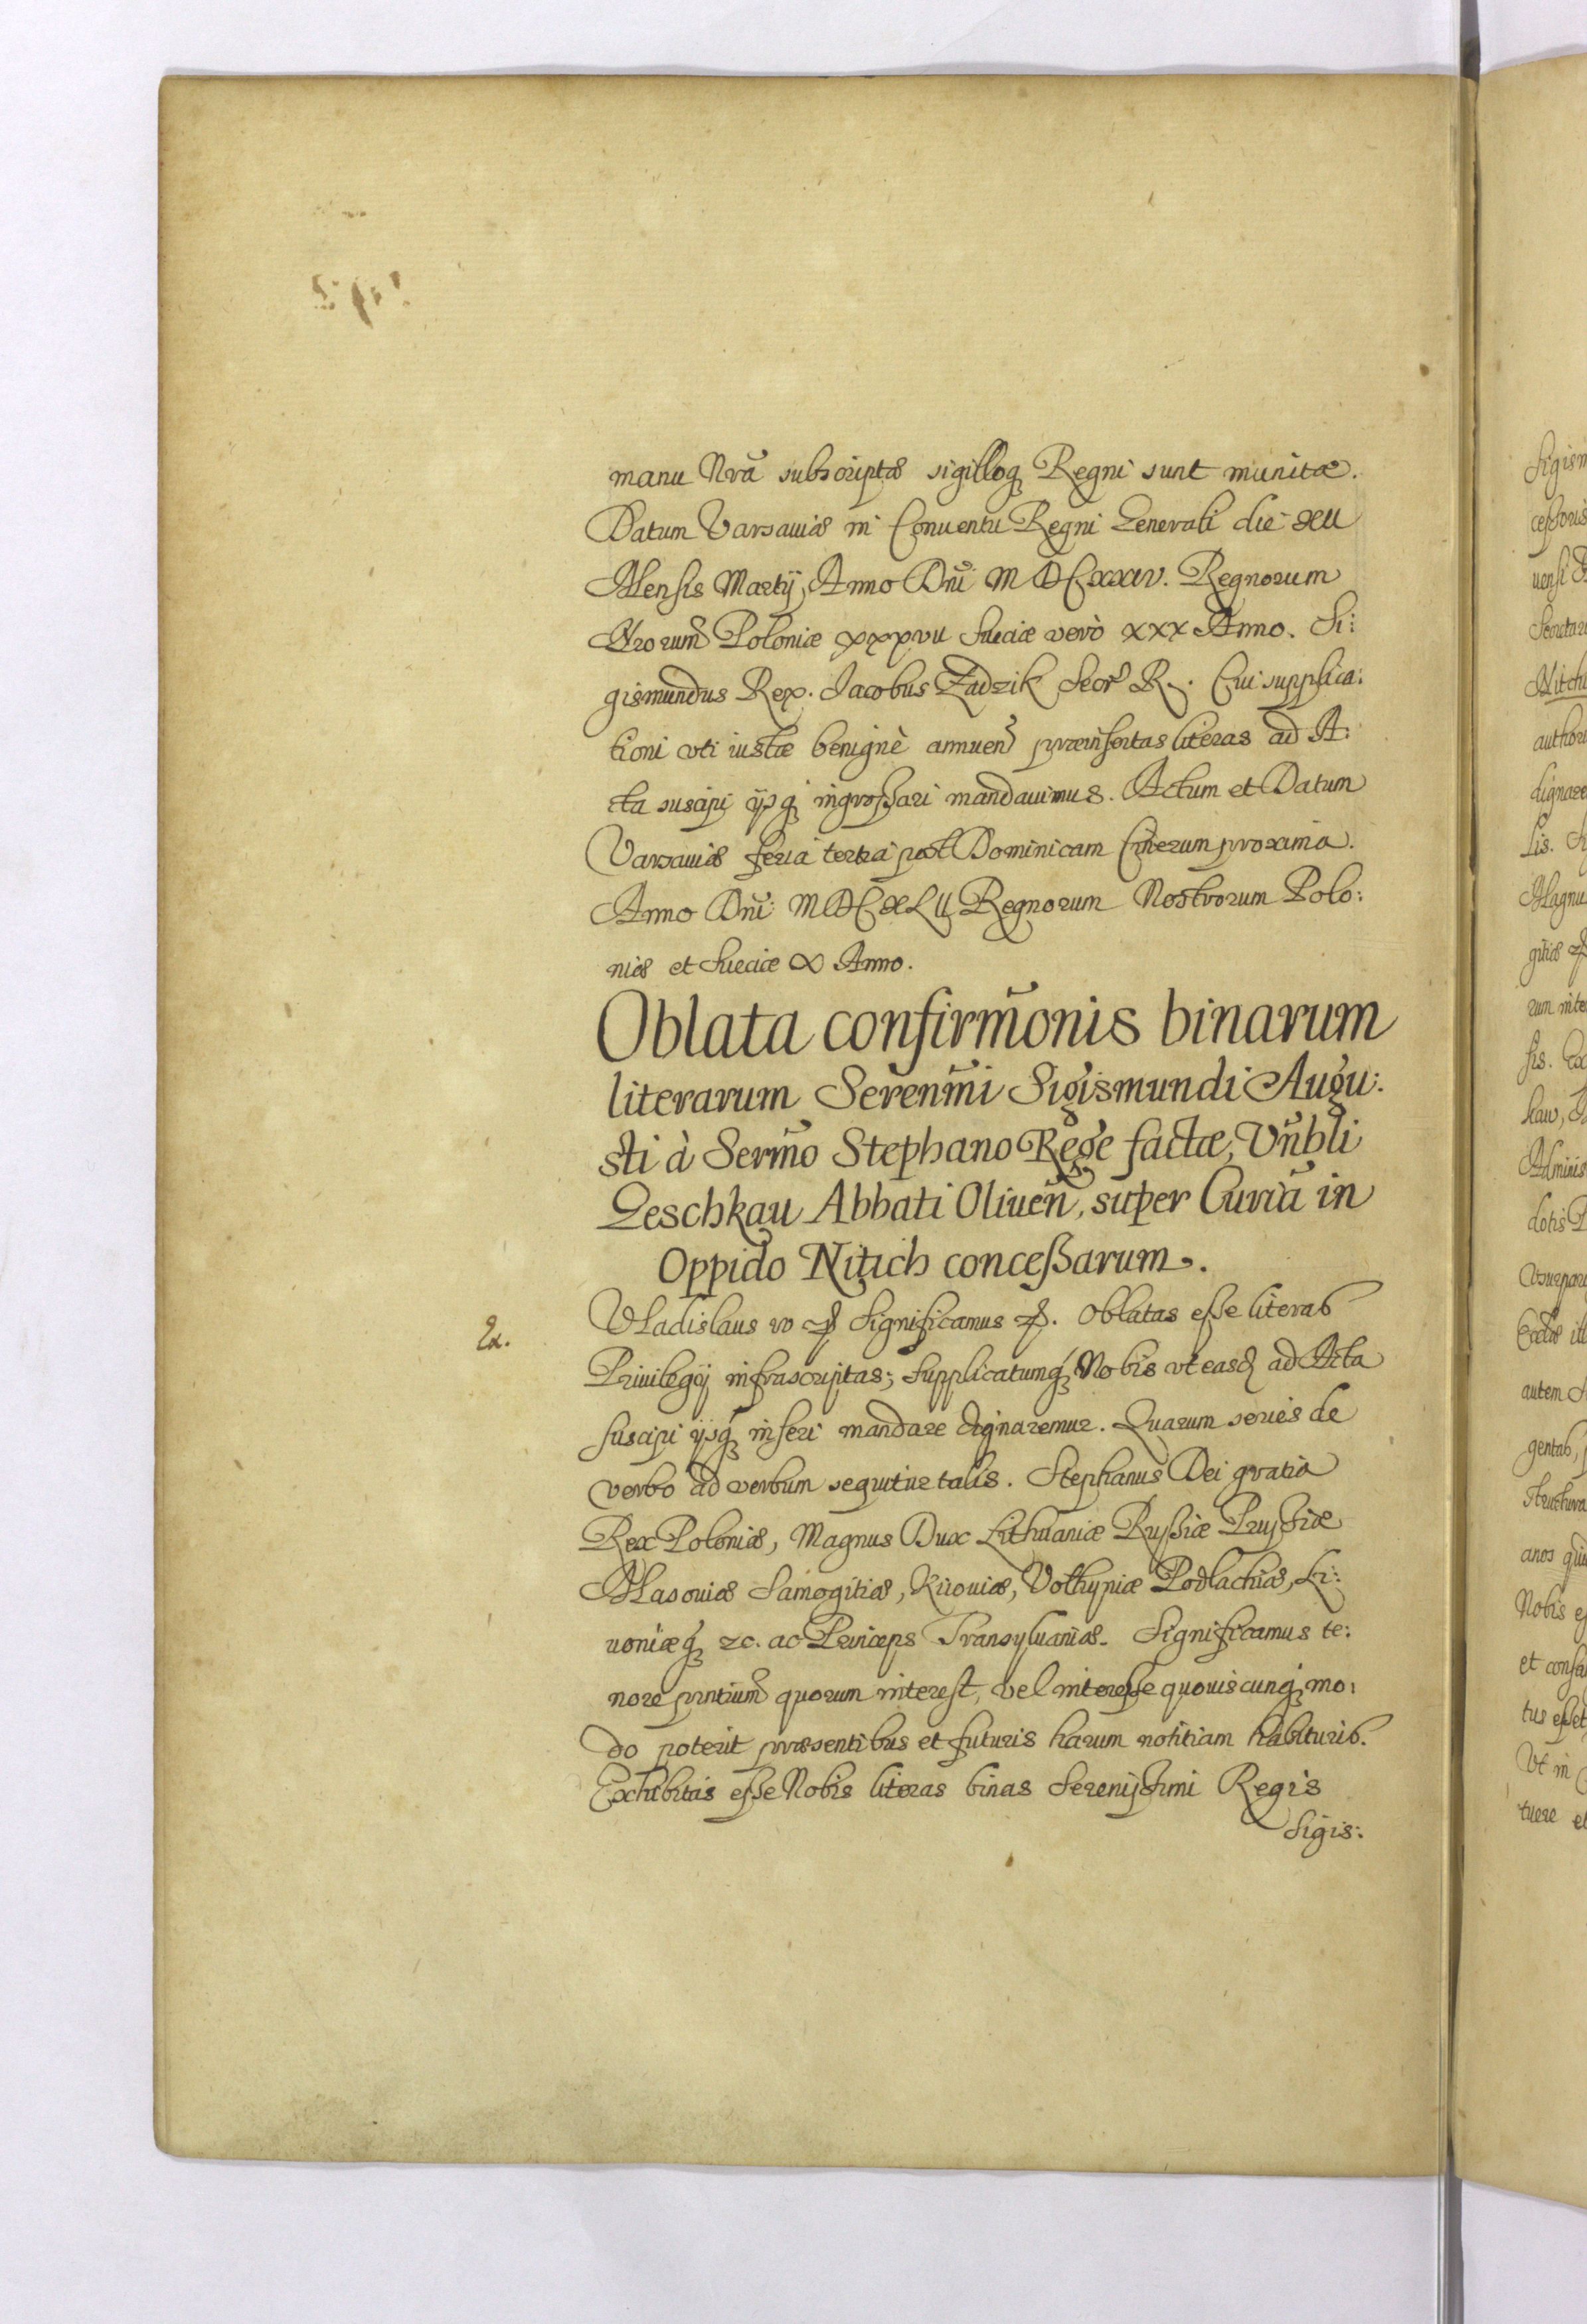 manu Nrã subscriptæ sigilloq̃ Regni sunt munitæ.
Datum Varsauiæ in Conuentu Regni Generali die xii
Mensis Martÿ, Anno Dnĩ MDCxxiv. Regnorum
Nrorum Poloniæ xxxvii Sueciæ verò xxx Anno. Si:
gismundus Rex. Jacobus Zadzik Secr R. Cui supplica:
tioni vti iustæ benignè annuen præinsertas literas ad A:
cta suscipi ijsq̃ ingrossari mandauimus. Actum et Datum
Varsauiæ feria tertia post Dominicam Cinerum proxima.
Anno Dnĩ MDCXLII Regnorum Nostrorum Polo:
niæ et Sueciæ X Anno.
Oblata confirmõnis binarum
literarum Serenmĩ Sigismundi Augu:
sti à Sermõ Stephano Rege factæ, Vnbli
Geschkau Abbati Oliuen, super Curiã in
Oppido Nitich conceßarum.
Ex.
Vladislaus iv Significamus. Oblatas esse literas
Priuilegij infrascriptas; supplicatumq̃ Nobis vt easd ad Acta
suscipi ijsq̃ inseri mandare dignaremur. Quarum series de
verbo ad verbum sequitur talis. Stephanus Dei gratia
Rex Poloniæ, Magnus Dux Lithuaniæ Rußiæ Prußiæ
Masouiæ Samogitiæ, Kiiouiæ, Volhyniæ Podlachiæ, Li:
uoniæq̃ zc. ac Princeps Transyluaniæ. Significamus te:
nore pntium quorum interest, vel interesse quouiscunq̃ mo:
do poterit præsentibus et futuris harum notitiam habituris.
Exhibitas esse Nobis literas binas Serenißimi Regis
Sigis: